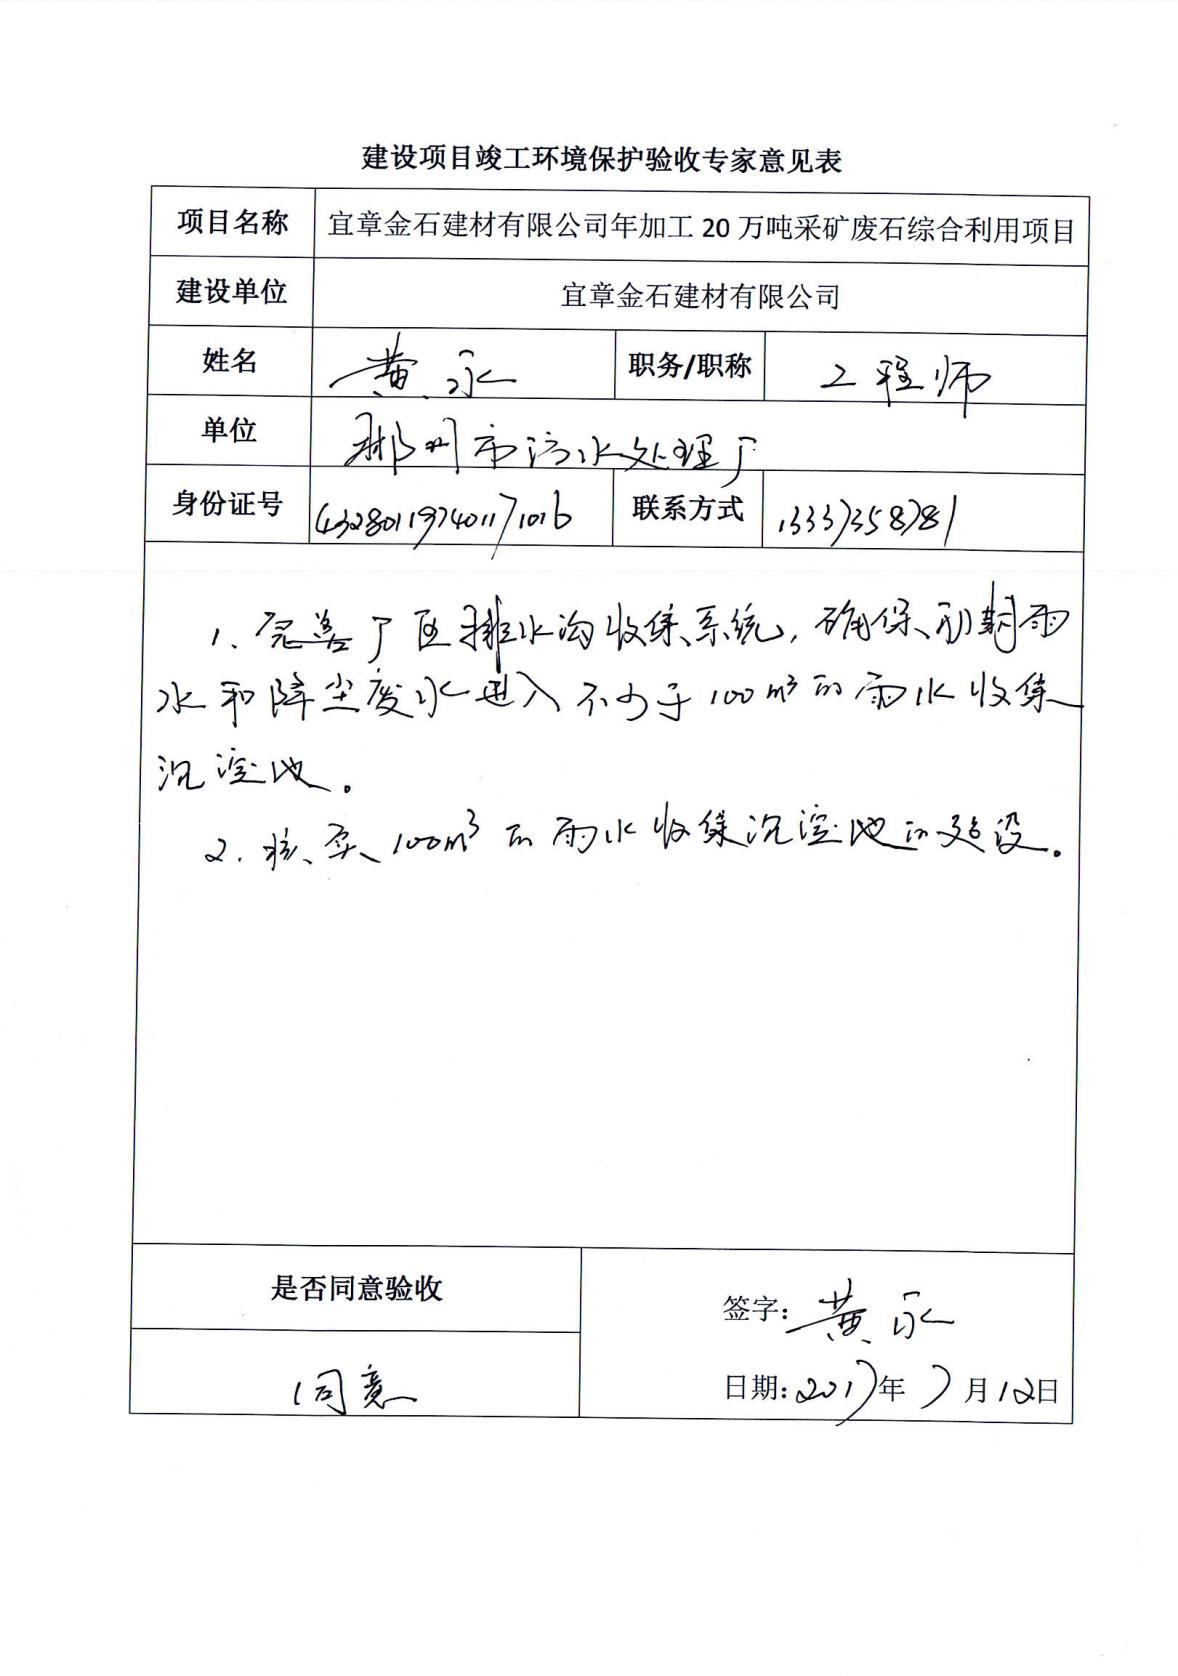 建设项目竣工环境保护验收专家意见表
项目名称 宜章金石建材有限公司年加工 20 万吨采矿废石综合利用项目
建设单位 宜章金石建材有限公司
姓名 黄永 职务/职称 工程师
单位 郴州市污水处理厂
身份证号 432801197401171016 联系方式 13337358781
1. 完善厂区排水沟收集系统，确保初期雨
水和降尘废水进入不少于100m³的雨水收集
沉淀池。
2. 核实100m³的雨水收集沉淀池的建设。
是否同意验收
签字：黄永
同意
日期：2017年7月12日